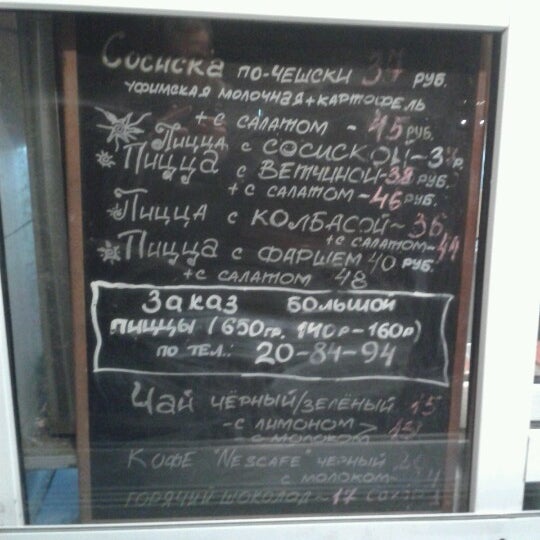 Сосиска по-чешски 37 руб.
уфимская молочная+картофель
+ с салатом - 45 руб.
Пицца с сосиской - 3 р
Пицца с ветчиной - 38 руб.
+ с салатом - 46 руб.
Пицца с колбасой - 36
+ с салатом - 44
Пицца с фаршем 40 руб.
+ с салатом 48
Заказ большой
пиццы (650гр. 140р-160р)
по тел.: 20-84-94
Чай чёрный/зелёный 15
- с лимоном >
с молоком
Кофе "Nescafe" чёрный
с молоком-
горячий шоколад - 17